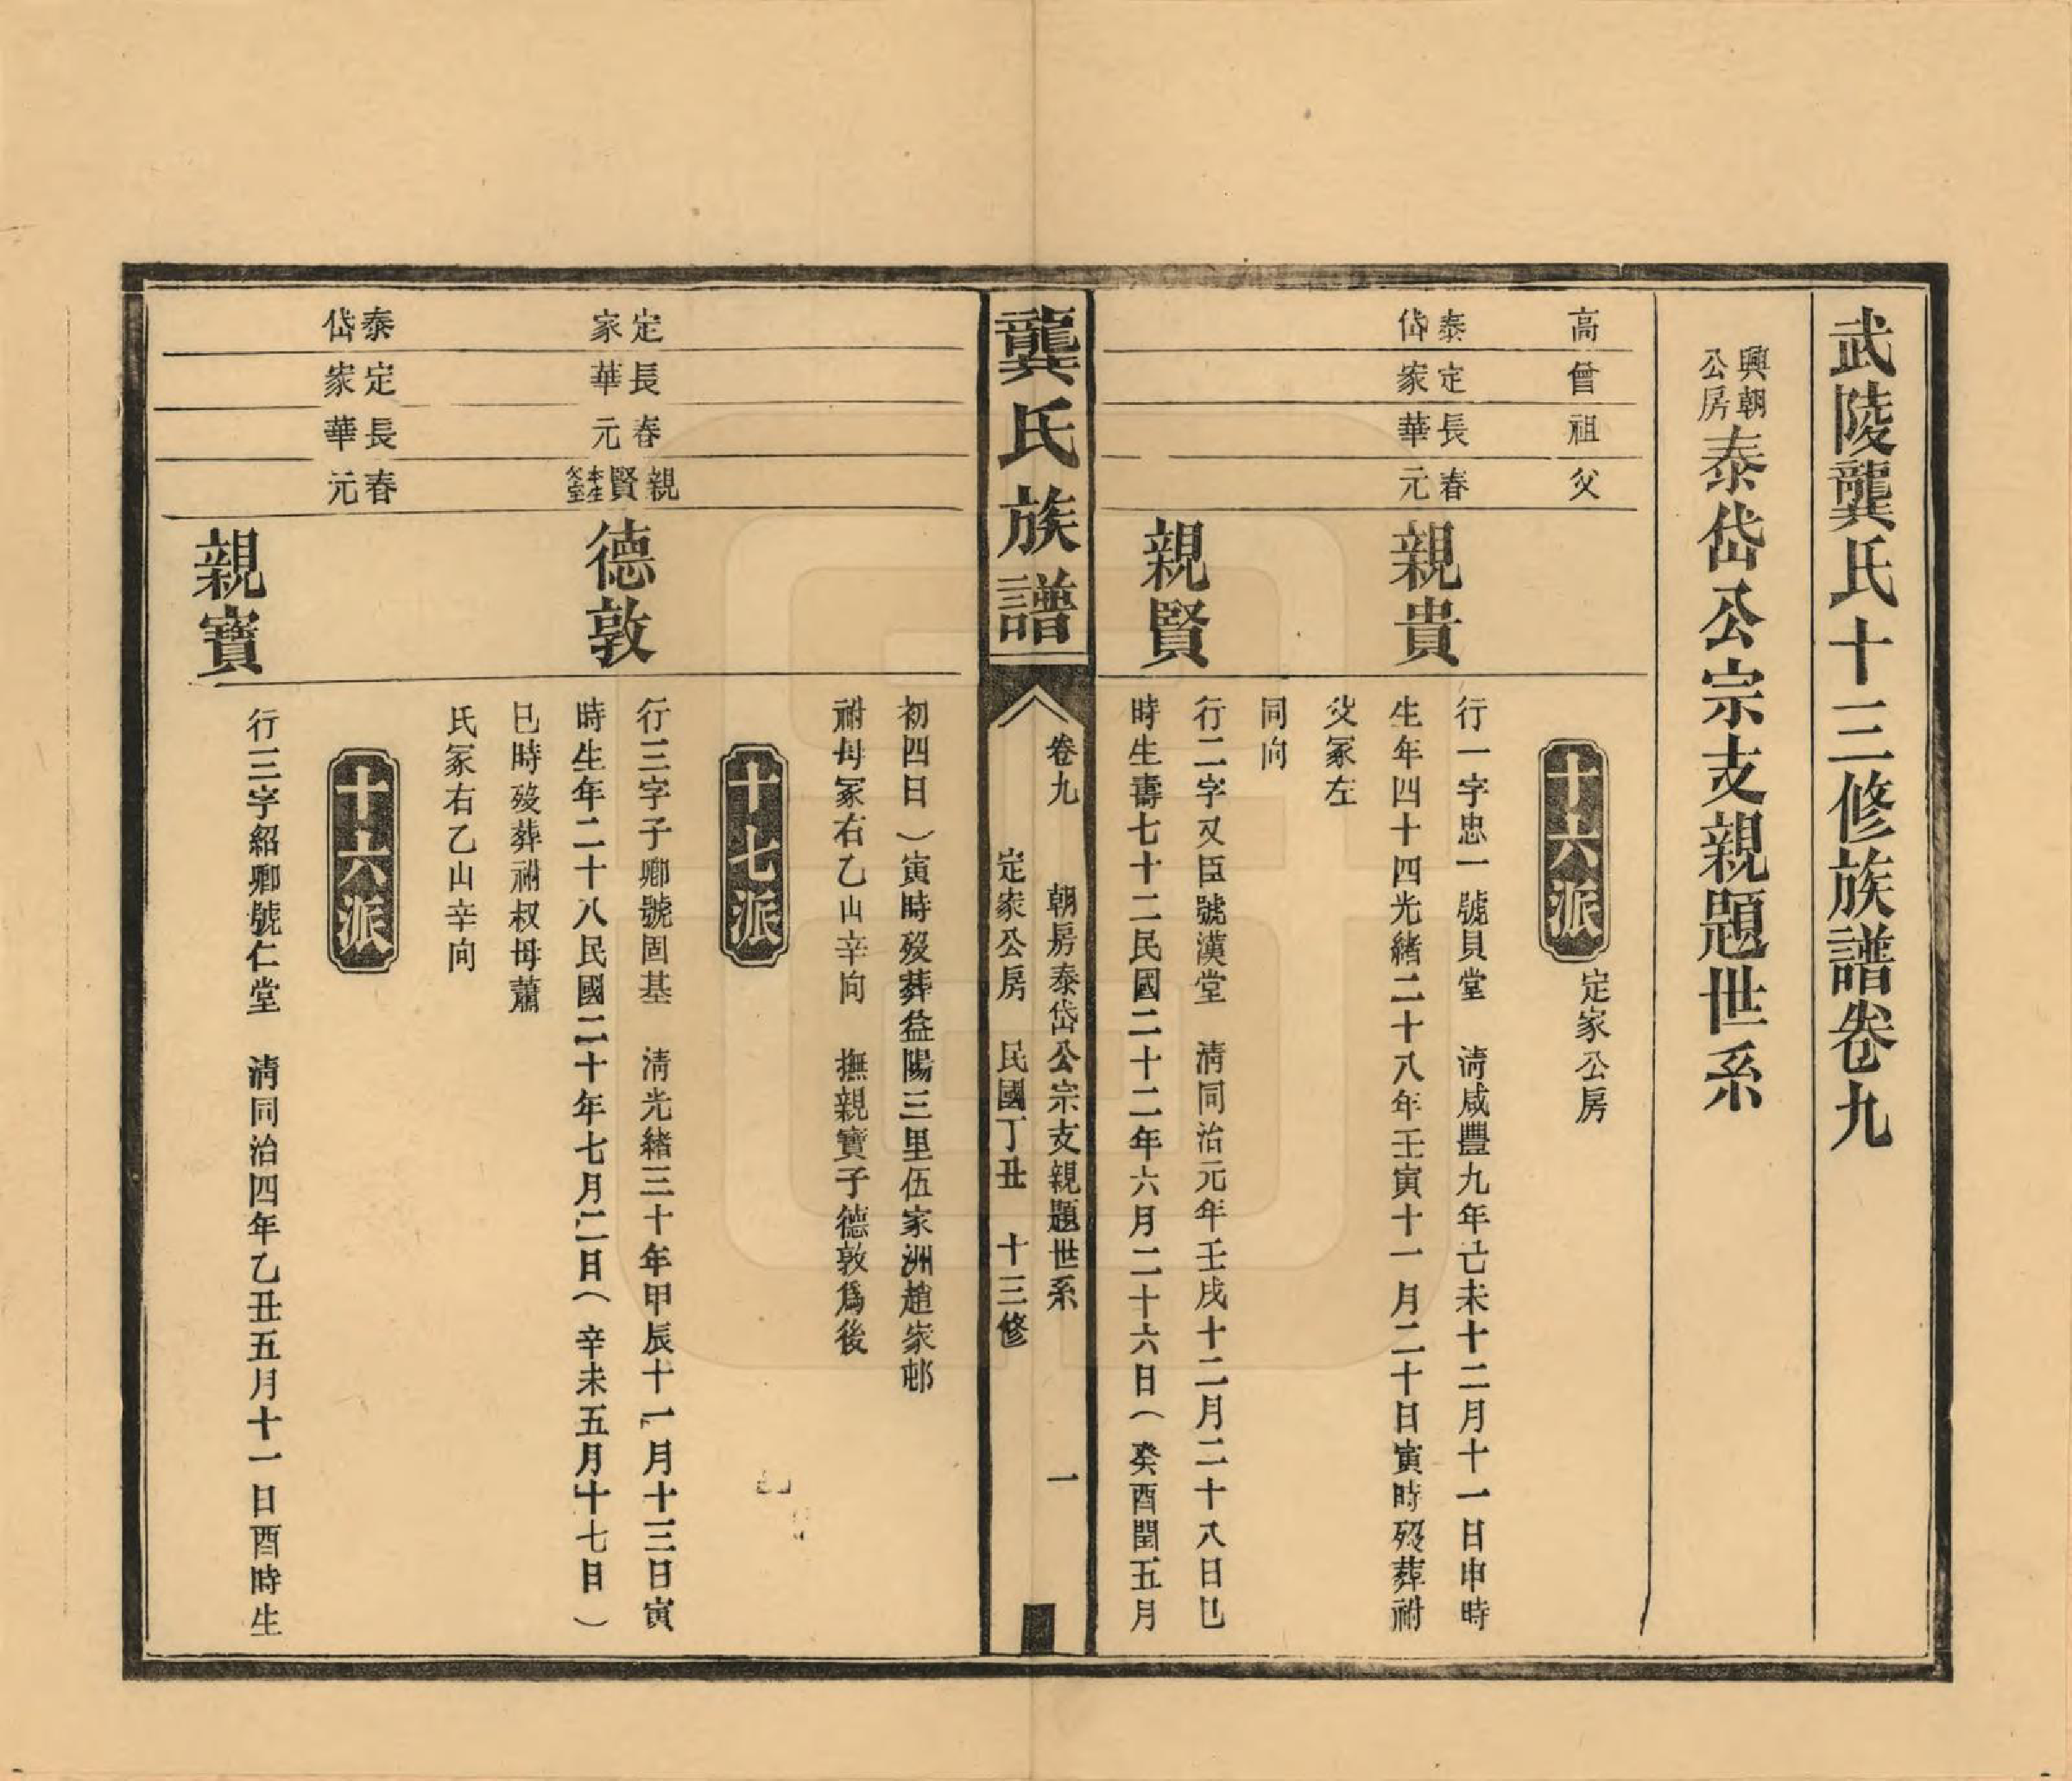 武陵龔氏十三修族譜卷九
興朝
公房
泰岱公宗支親題世系
高
曾
祖
父
十六派
定家公房
泰岱
定家
長華
春元
親貴
行一字忠一號貝堂　清咸豐九年己未十二月十一日申時
生年四十四光緒二十八年壬寅十一月二十日寅時歿葬祔
父冢左
同向
親賢
行二字又臣號漢堂　清同治元年壬戌十二月二十八日巳
時生壽七十二民國二十二年六月二十六日（癸酉閏五月
龔氏族譜
卷九　朝房泰岱公宗支親題世系　一
定家公房　民國丁丑　十三修
初四日）寅時歿葬益陽三里伍家洲趙家邨
祔母冢右乙山辛向　撫親寶子德敦爲後
十七派
定家
長華
春元
親賢
本生
父寶
德敦
行三字子卿號固基　清光緒三十年甲辰十一月十三日寅
時生年二十八民國二十年七月二日（辛未五月十七日）
巳時歿葬祔叔母蕭
氏冢右乙山辛向
十六派
泰岱
定家
長華
春元
親寶
行三字紹卿號仁堂　清同治四年乙丑五月十一日酉時生